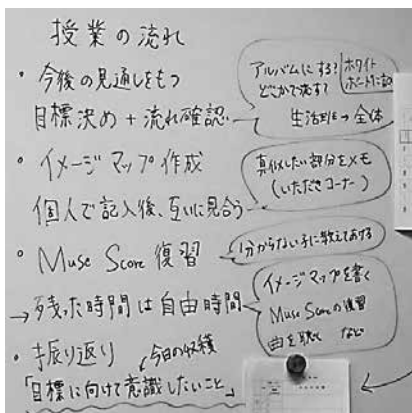 授業の流れ
・今後の見通しをもつ
目標決め + 流れ確認
アルバムにする?
どこかで流す?
ホワイト
ボードに記
生活班→全体
・イメージマップ作成
個人で記入後、互いに見合う
真似したい部分をメモ
(いただきコーナー)
・Muse Score 復習
分からない子に教えてあげる
→残った時間は自由時間
イメージマップを書く
Muse Scoreの復習
曲を聴く など
・振り返り
今日の収穫
「目標に向けて意識したいこと」